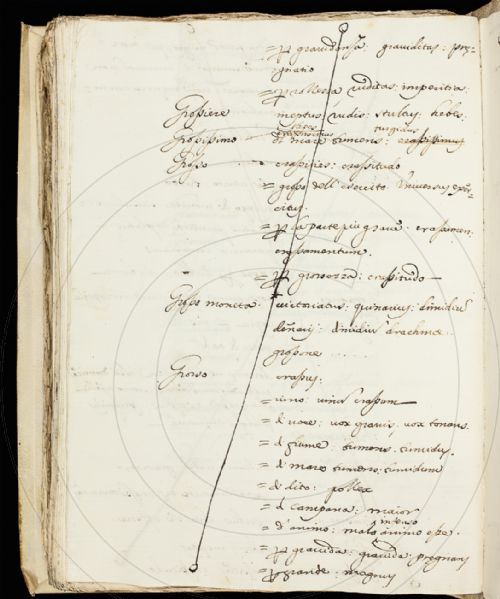 = p gravidenza: graviditas: præ-
gnatio
= p rozzezza ruditas: imperitia
Grossiere ineptus: rudis: stultus: hebes:
Grossissimo turgidus
di mare tumens: crassissimus
Grosso crassities: crassitudo
= grosso dell'esercito. Universus exer-
citus.
= p la parte piu grave. crassamen:
crassamentum.
= p grossezza: crassitudo
Grosso moneta. victoriatus: quinarius: dimidius
denarius: dimidius drachmæ
grossone
Grosso crassus.
= vino vinum crassum
= di voce: vox gravis. vox tonans.
= di fiume tumens. tumidus.
= di mare tumens: tumidum
= di dito: pollex
= di campana: maior
= d'animo: malo animo esse.
= p gravida: gravida: pregnans
= p grande: magnus